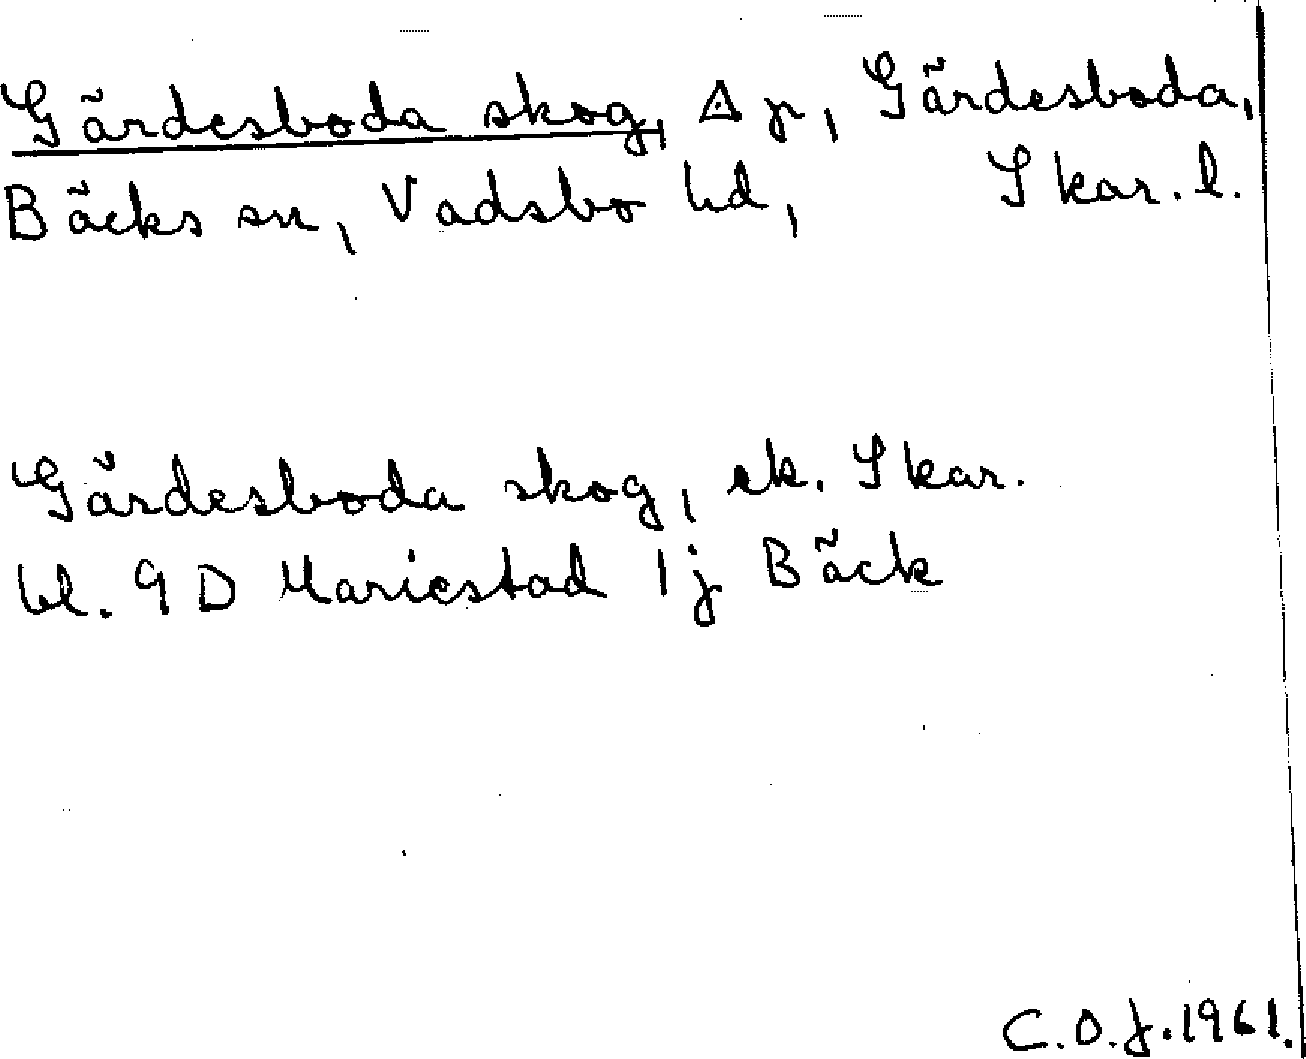 Gärdesboda skog, △ p, Gärdesboda,
Bäcks sn, Vadsbo hd, Skar. l.
Gärdesboda skog, ek. Skar.
bl. 9 D Mariestad 1 j Bäck
C.O.J. 1961.